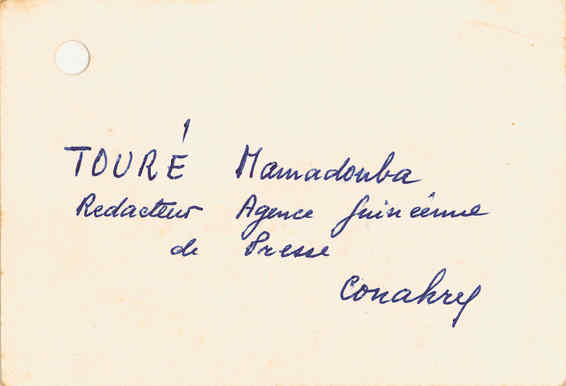 TOURÉ Mamadouba
Redacteur Agence Guinéenne
de Presse
Conakry